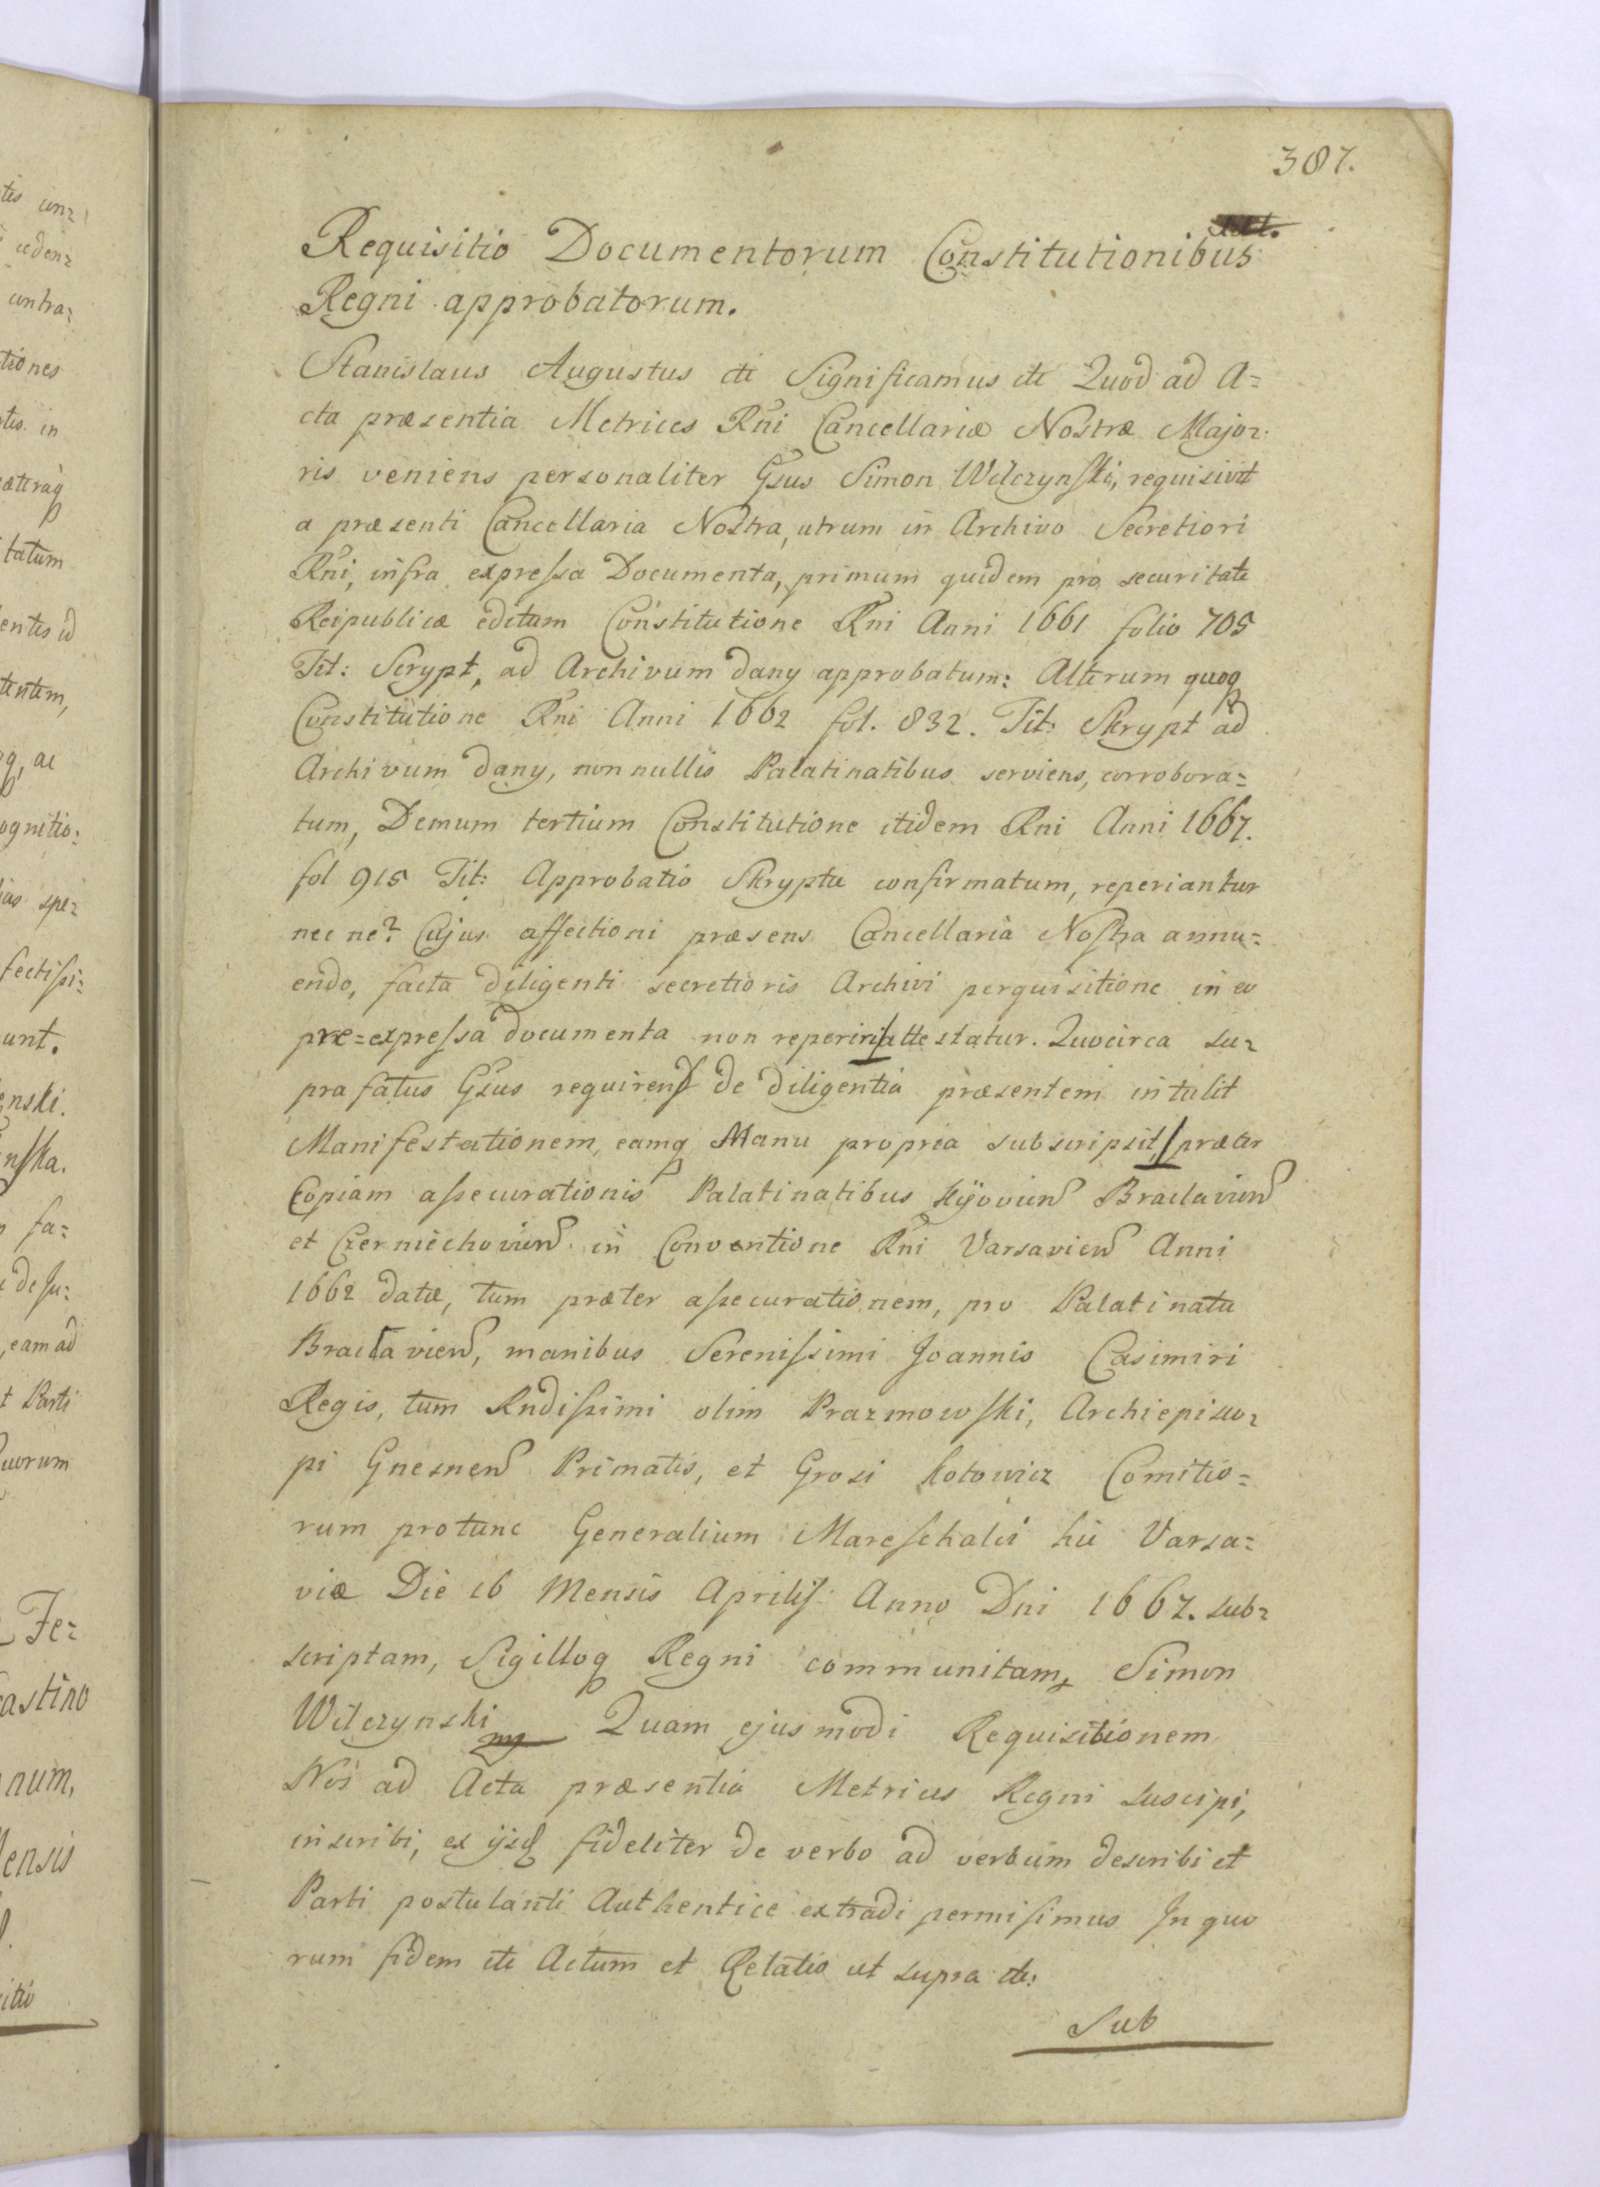 387.
Requisitio Documentorum Constitutionibus
Regni approbatorum.
Stanislaus Augustus etc Significamus etc Quod ad A=
cta præsentia Metrices Rñi Cancellariæ Nostræ Majo=
ris veniens personaliter Gsus Simon Wilczynski, requisivit
a præsenti Cancellaria Nostra, utrum in Archivo Secretiori
Rñi, infra expressa Documenta, primum quidem pro securitate
Reipublicæ editum Constitutione Rñi Anni 1661 folio 705
Tit: Scrypt, ad Archivum dany approbatum: Alterum quoq
Constitutione Rñi Anni 1662 fol. 832. Tit: Skrypt ad
Archivum dany, nonnullis Palatinatibus serviens, corrobora=
tum, Demum tertium Constitutione itidem Rñi Anni 1667.
fol 915 Tit: Approbatio Skryptu confirmatum, reperiantur
nec ne? Cujus affectioni præsens Cancellaria Nostra annu=
endo, facta diligenti secretioris Archivi perquisitione in eo
præ=expressa documenta non reperiri attestatur. Quocirca su=
prafatus Gsus requirens de diligentia præsentem intulit
Manifestationem, eamq Manu propria subscripsit, præter
Copiam assecurationis Palatinatibus Kijovien Braclavien
et Czerniechovien in Conventione Rñi Varsavien Anni
1662 datæ, tum præter assecurationem, pro Palatinatu
Braclavien, manibus Serenissimi Joannis Casimiri
Regis, tum Rndissimi olim Prazmowski, Archiepisco=
pi Gnesnen Primatis, et Grosi Kotowicz Comitio=
rum protunc Generalium Mareschalci hic Varsa=
viæ Die 16 Mensis Aprilis Anno Dni 1667. sub=
scriptam, Sigilloq Regni communitam, Simon
Wilczynski mp Quam ejusmodi Requisitionem
Nos ad Acta præsentia Metrices Regni suscipi,
inscribi, ex ijsq fideliter de verbo ad verbum describi et
Parti postulanti Authentice extradi permisimus In quo
rum fidem etc Actum et Relatio ut supra etc:
Sub